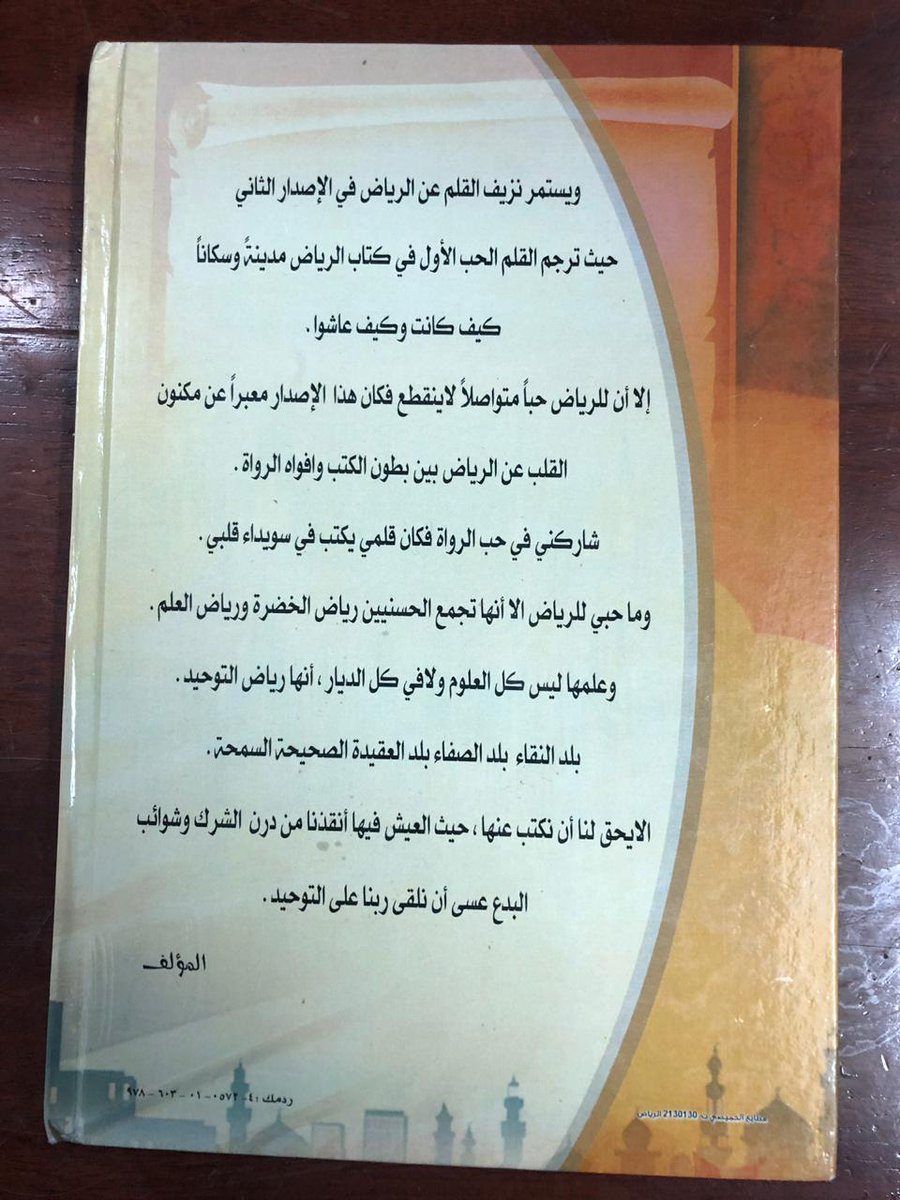 ويستمر نزيف القلم عن الرياض في الإصدار الثاني
حيث ترجم القلم الحب الأول في كتاب الرياض مدينةً وسكاناً
كيف كانت وكيف عاشوا .
إلا أن للرياض حباً متواصلاً لاينقطع فكان هذا الإصدار معبراً عن مكنون
القلب عن الرياض بين بطون الكتب وافواه الرواة .
شاركني في حب الرواة فكان قلمي يكتب في سويداء قلبي .
وما حبي للرياض الا أنها تجمع الحسنيين رياض الخضرة ورياض العلم .
وعلمها ليس كل العلوم ولافي كل الديار ، أنها رياض التوحيد .
بلد النقاء بلد الصفاء بلد العقيدة الصحيحة السمحة .
الايحق لنا أن نكتب عنها ، حيث العيش فيها أنقذنا من درن الشرك وشوائب
البدع عسى أن نلقى ربنا على التوحيد .
المؤلف
ردمك : ٤ - ٠٥٧٢ - ٠١ - ٦٠٣ - ٩٧٨
مطابع الحميضي ت: 2130130 الرياض